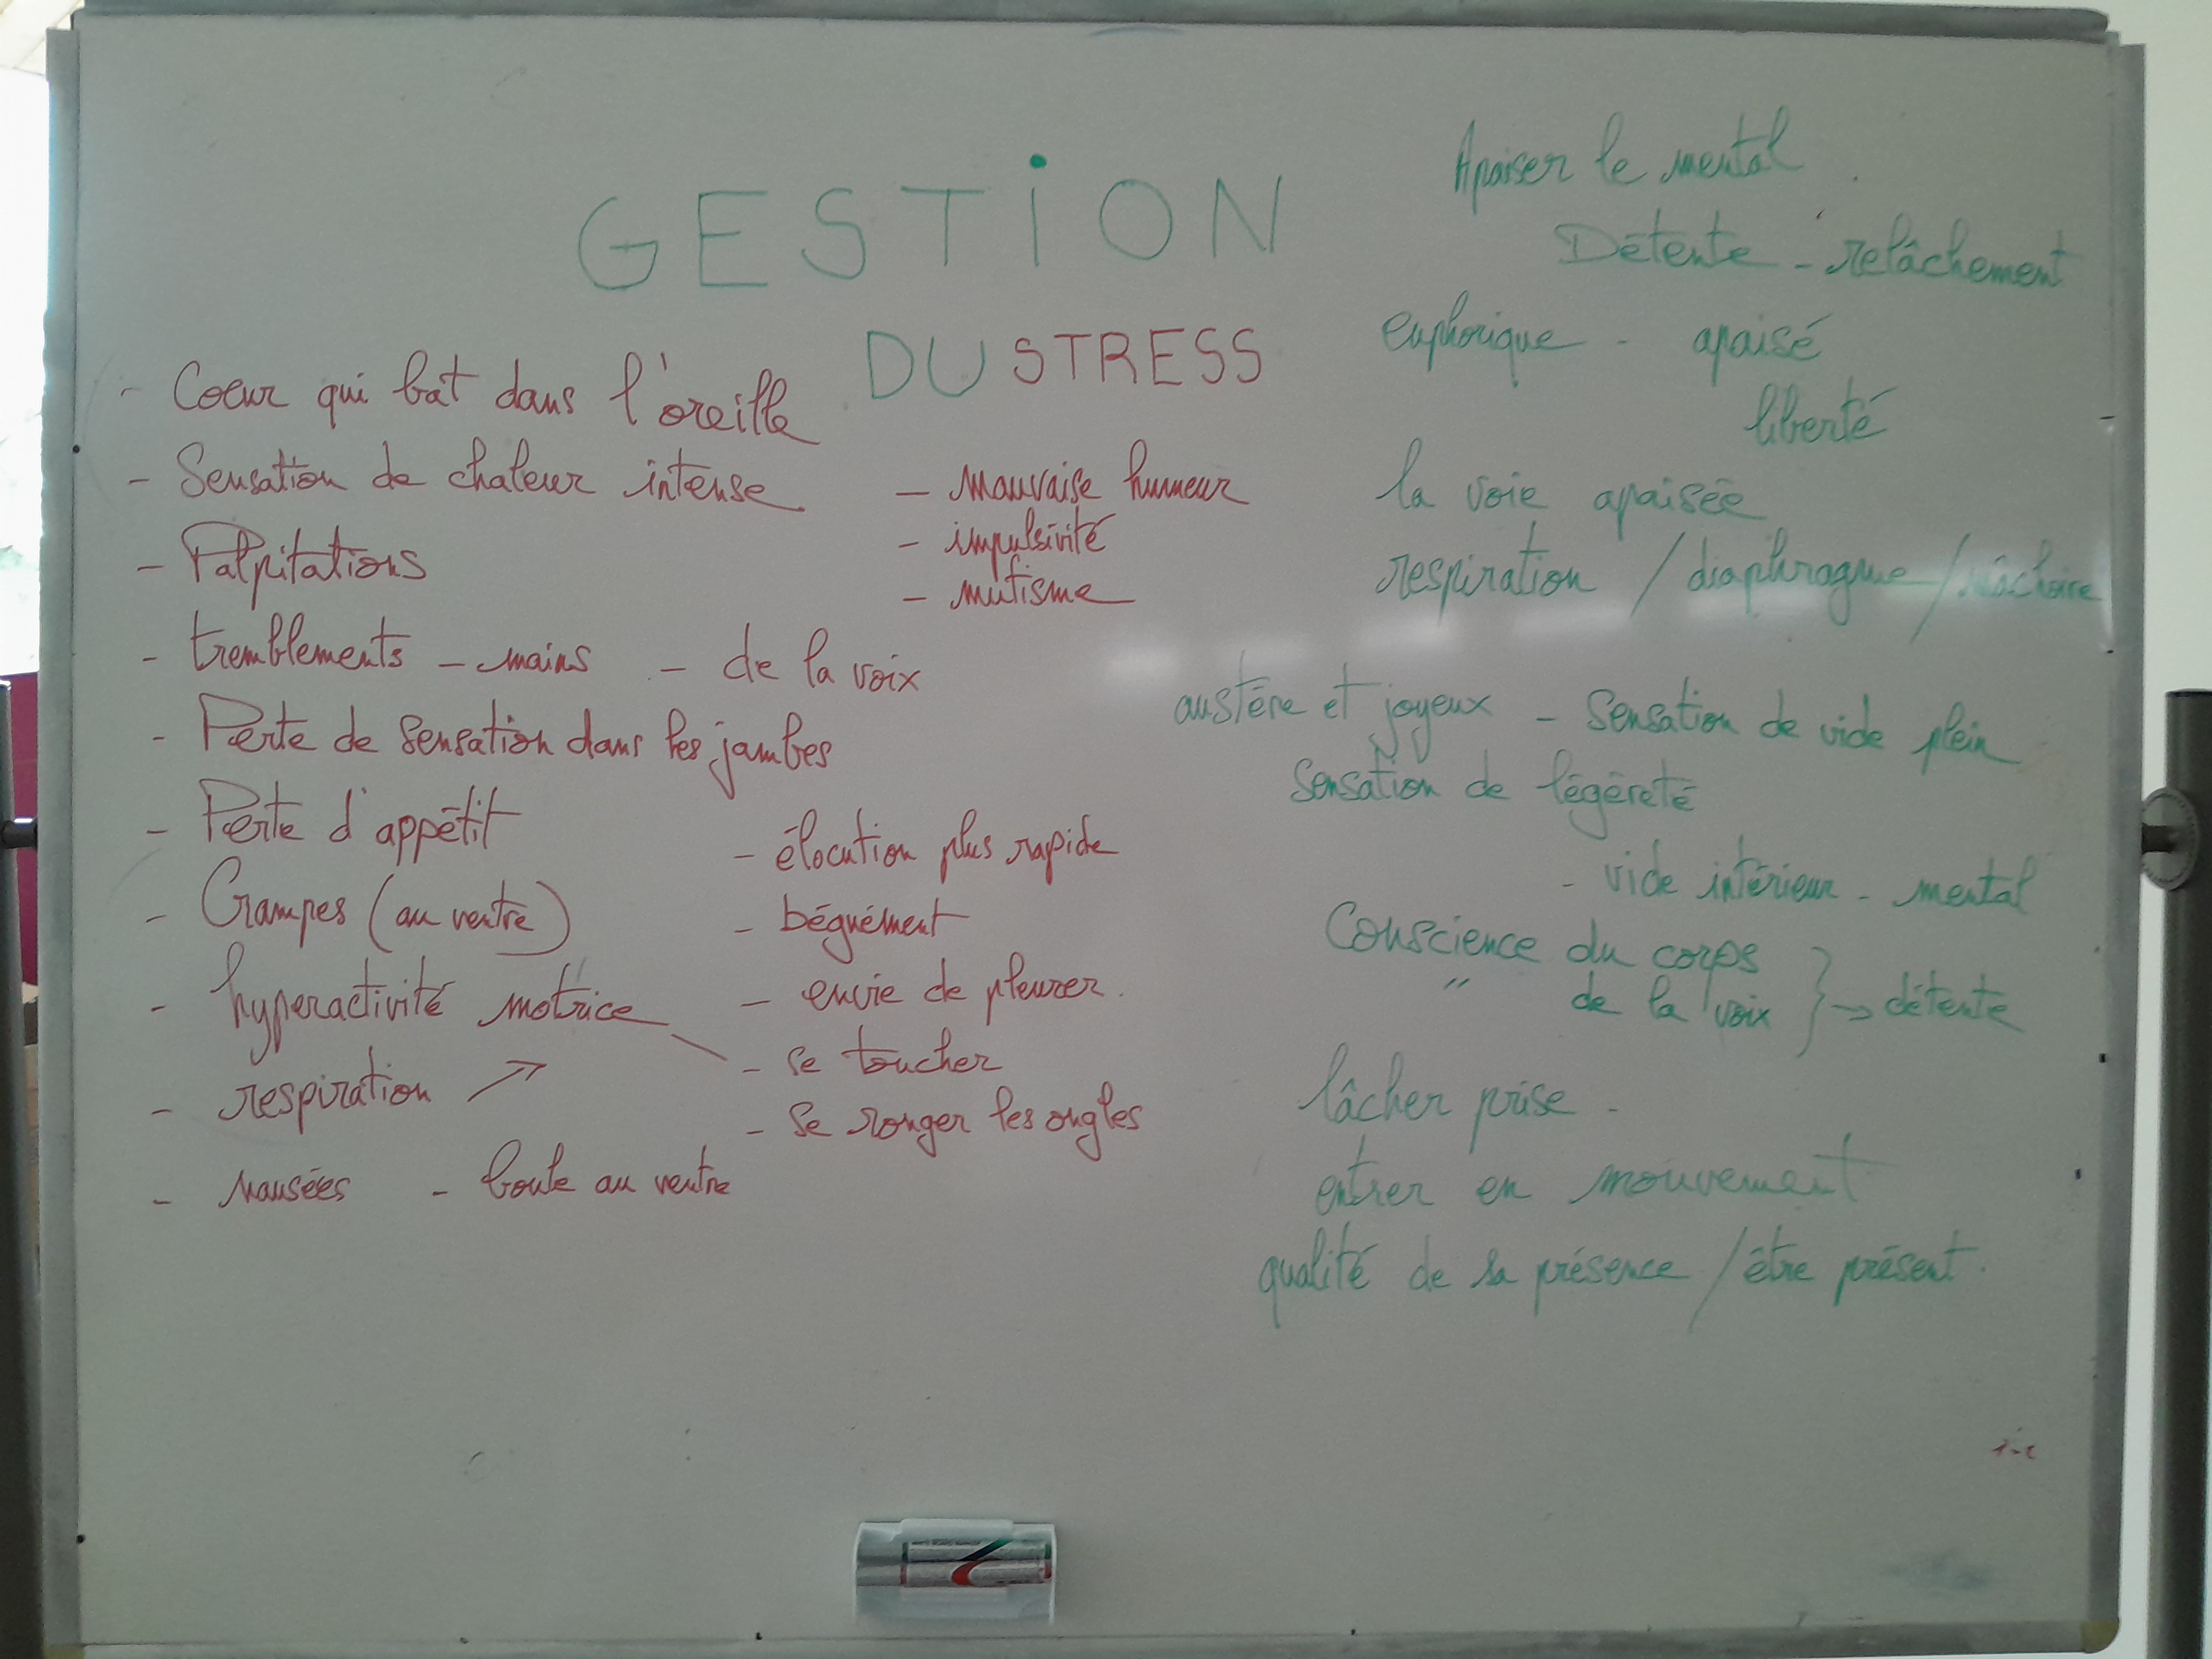 GESTiON
DU STRESS
- Coeur qui bat dans l'oreille
- Sensation de chaleur intense
- Palpitations
- tremblements - mains - de la voix
- Perte de sensation dans les jambes
- Perte d'appétit
- Crampes (au ventre)
- hyperactivité motrice
- respiration ↗
- Nausées - boule au ventre
- Mauvaise humeur
- impulsivité
- mutisme
- élocution plus rapide
- béguément
- envie de pleurer.
- se toucher
- se ronger les ongles
Apaiser le mental.
Détente - relâchement
euphorique - apaisé
liberté
la voie apaisée
respiration / diaphragme / mâchoire
austère et joyeux - Sensation de vide plein
Sensation de légèreté
- vide intérieur - mental
Conscience du corps
" de la voix } → détente
lâcher prise -
entrer en mouvement
qualité de sa présence / être présent.